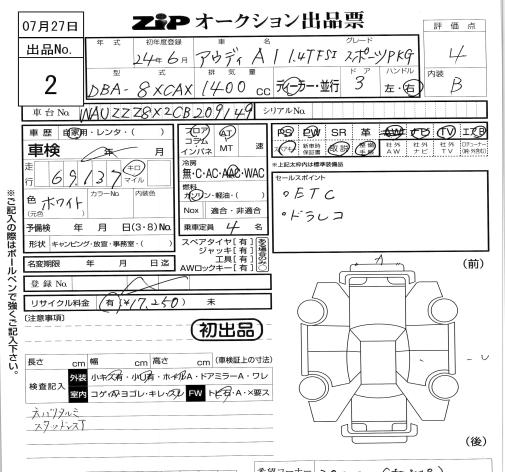 07月27日
ZIP オークション出品票
評価点
4
出品No.
2
年式 初年度登録 車名 グレード
24年6月 アウディ A1 1.4TFSI スポーツPKG
型式 排気量 ドア ハンドル
DBA-8XCAX 1400 cc ディーラー・並行 3 左・右
内装
B
車台No. WAUZZZ8X2CB209149 シリアルNo.
車歴 自家用・レンタ・( )
車検 年 月
走行 69,137 キロ マイル
色 (元色) ホワイト カラーNo. 内装色
予備検 年 月 日(3・8)No.
形状 キャンピング・放宣・事務室・( )
名変期限 年 月 日迄
登録No.
リサイクル料金 有 ¥17,250 未
フロア コラム インパネ AT MT 速
冷房
無・C・AC・AAC・WAC
燃料
ガソリン・軽油・( )
Nox 適合・非適合
乗車定員 4 名
スペアタイヤ[有]
ジャッキ[有]
工具[有]
AWロックキー[有]
PS PW SR 革 AW ナビ TV エアB
新車時保証書 取説 整備手帳 社外AW 社外ナビ 社外TV
※上記太枠内は標準装備品
セールスポイント
。ETC
。ドラレコ
[注意事項]
初出品
長さ cm 幅 cm 高さ cm (車検証上の寸法)
検査記入 外装 小キズ有・小凹有・ホイルA・ドアミラーA・ワレ
室内 コゲA・ヨゴレ・キレ・スレ FW トビ石・A・×要ス
スタッドレス
(前)
A
U
(後)
※ご記入の際はボールペンで強くご記入下さい。